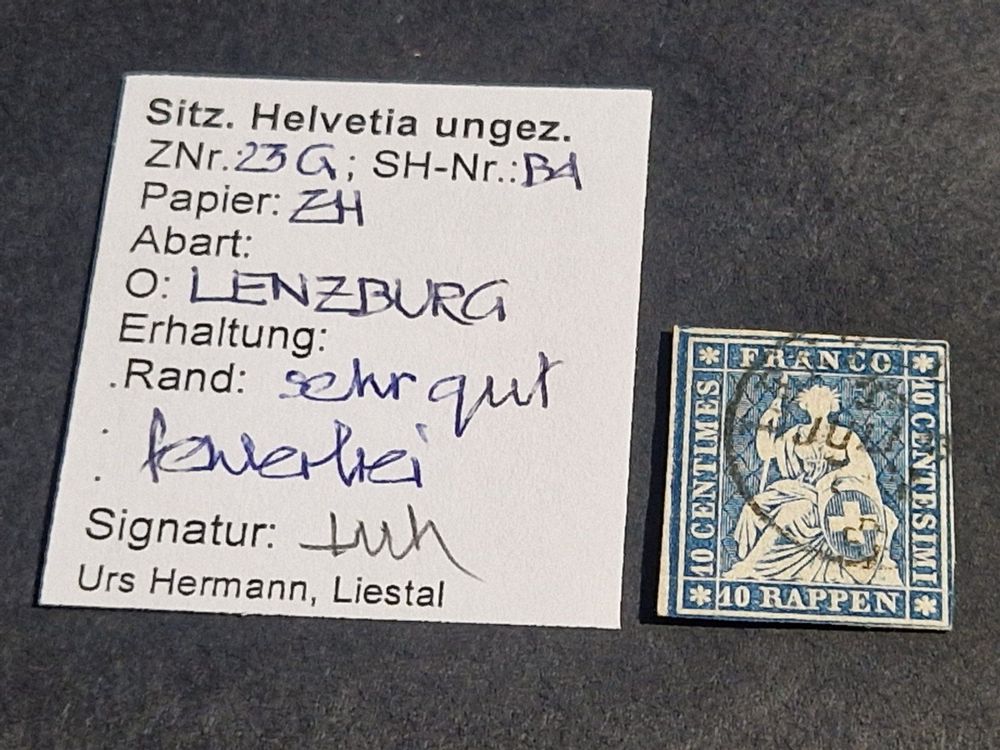 Sitz. Helvetia ungez.
ZNr.: 23G; SH-Nr.: B4
Papier: ZH
Abart:
O: LENZBURG
Erhaltung:
. Rand: sehr gut
: fehlerfrei
.
Signatur:
Urs Hermann, Liestal
FRANCO
10 CENTIMES
10 CENTESIMI
10 RAPPEN